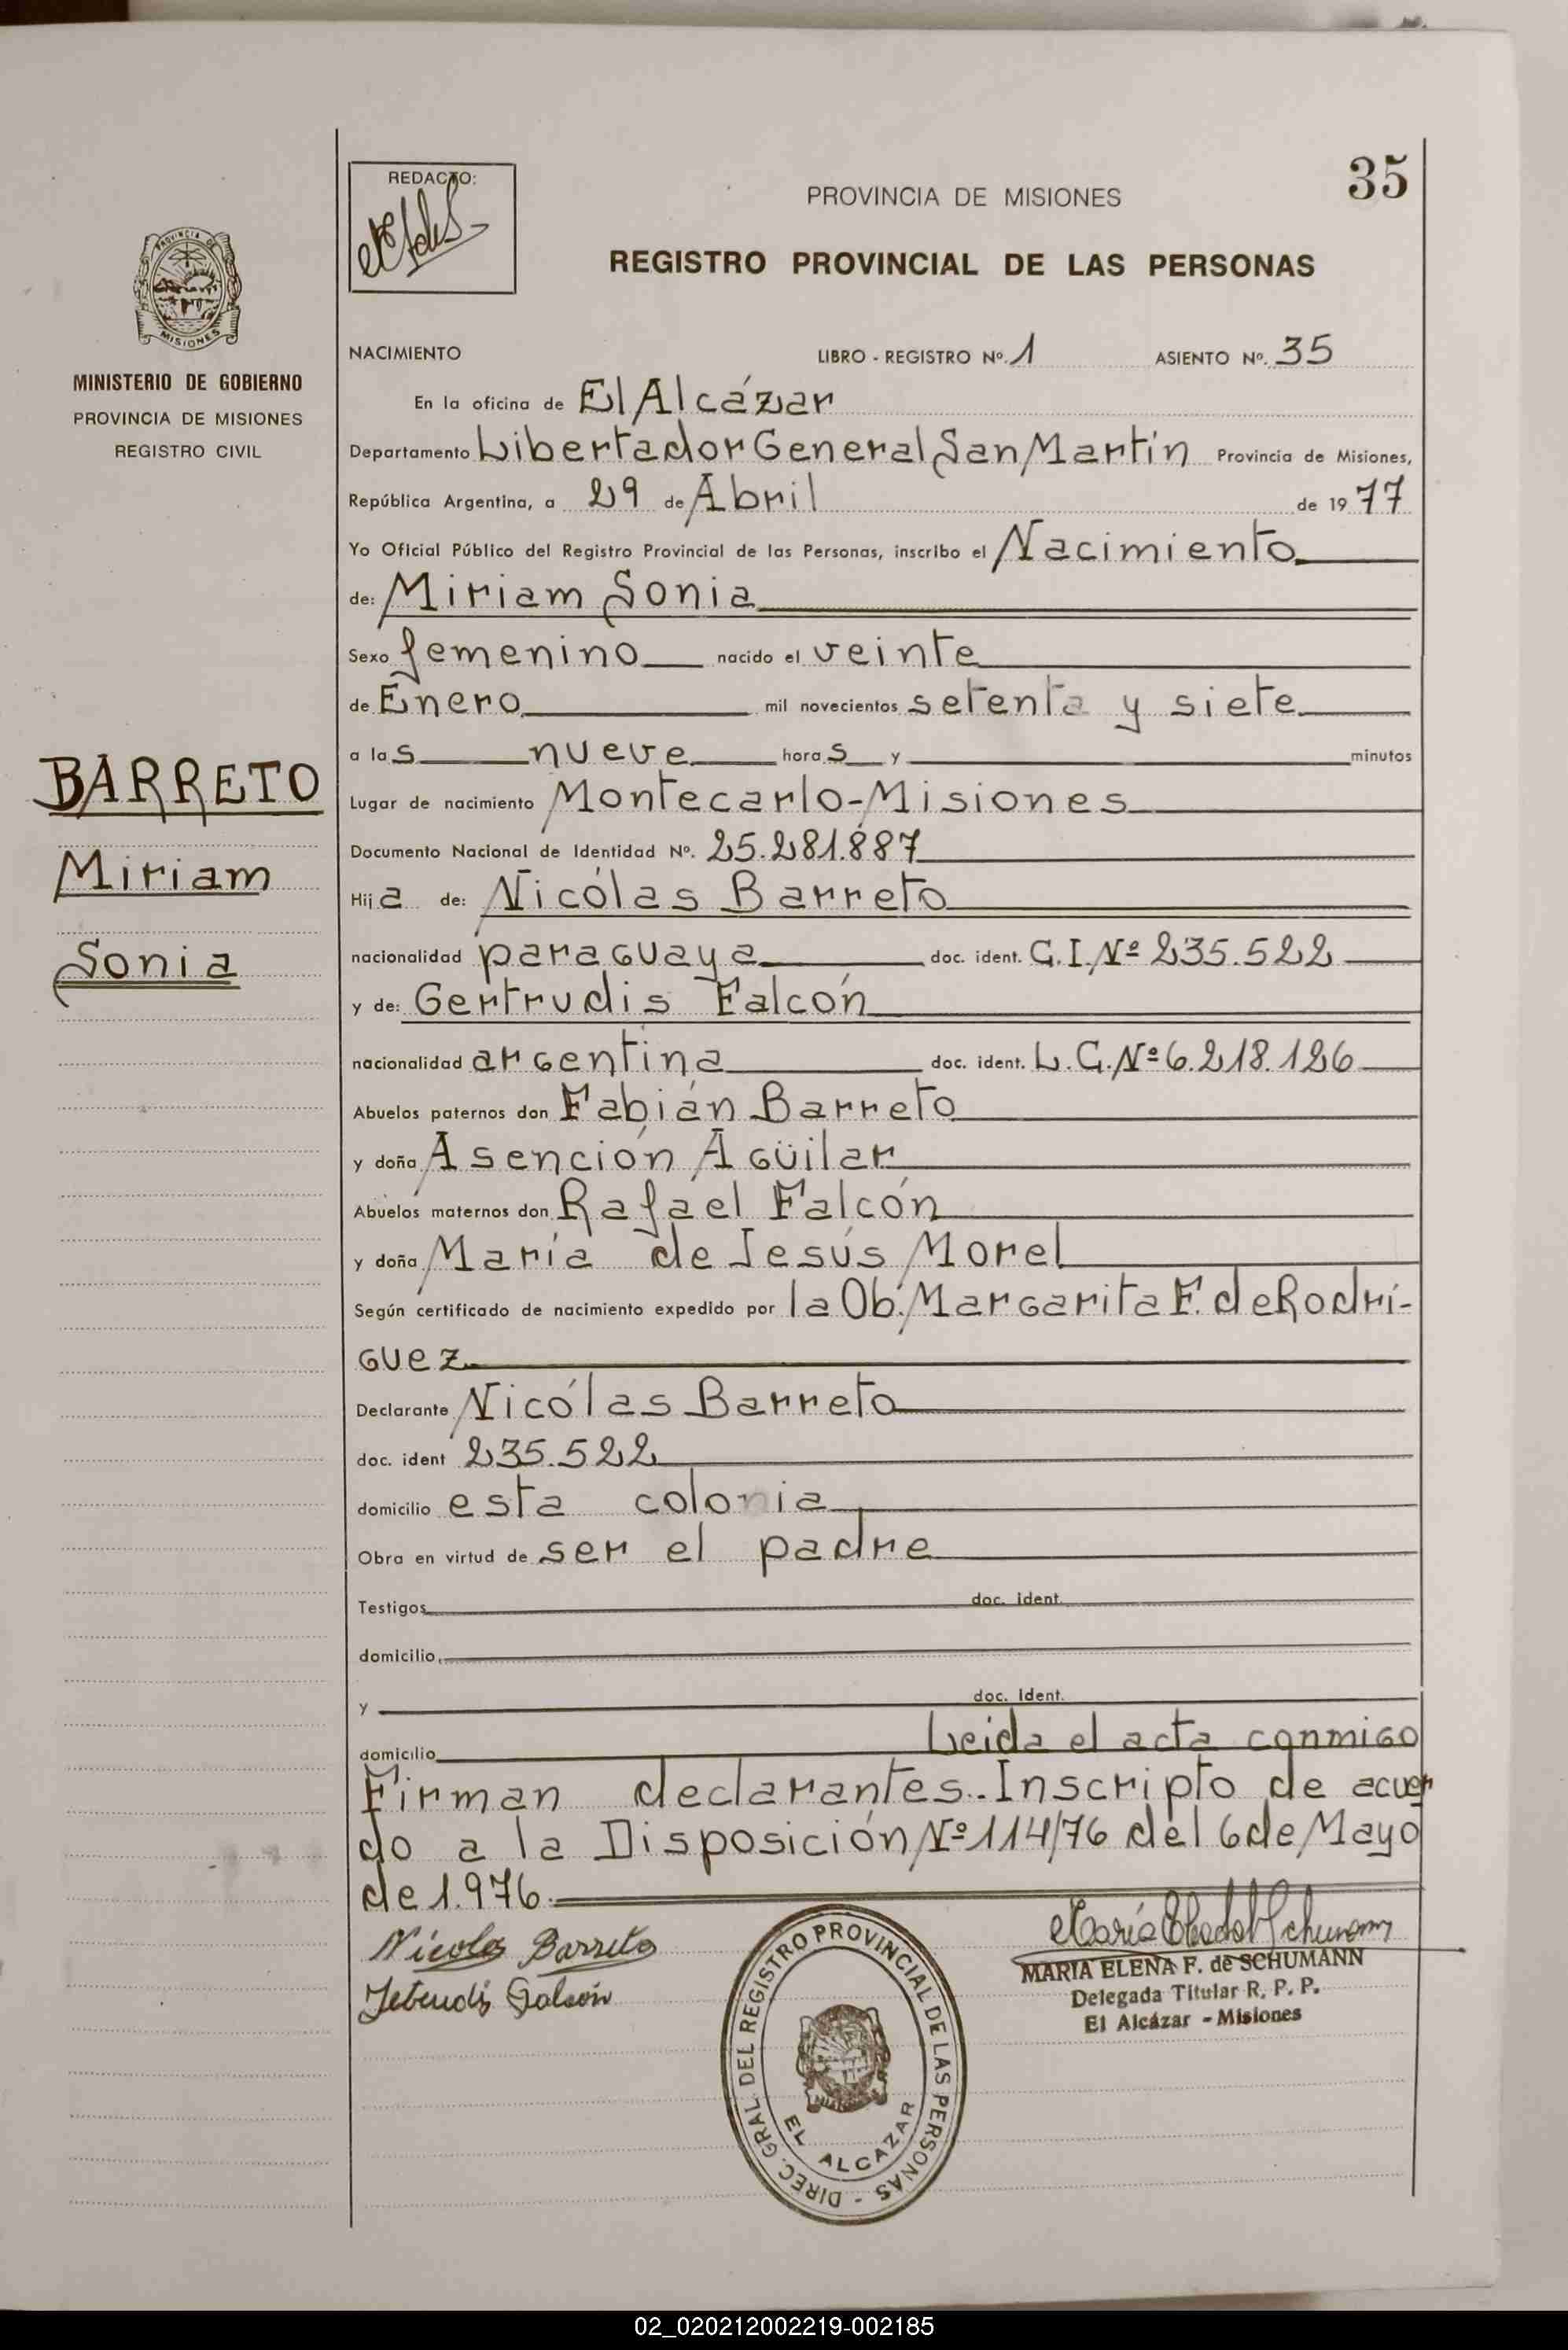 35
REDACTO:
PROVINCIA DE MISIONES
REGISTRO PROVINCIAL DE LAS PERSONAS
PROVINCIA DE MISIONES
MINISTERIO DE GOBIERNO
PROVINCIA DE MISIONES
REGISTRO CIVIL
BARRETO
Miriam
Sonia
NACIMIENTO LIBRO - REGISTRO Nº. 1 ASIENTO Nº. 35
En la oficina de El Alcázar
Departamento Libertador General San Martín Provincia de Misiones,
República Argentina, a 29 de Abril de 1977
Yo Oficial Público del Registro Provincial de las Personas, inscribo el Nacimiento
de: Miriam Sonia
Sexo femenino nacido el veinte
de Enero mil novecientos setenta y siete
a las nueve horas y minutos
Lugar de nacimiento Montecarlo-Misiones
Documento Nacional de Identidad Nº. 25.281.887
Hija de: Nicólas Barreto
nacionalidad paraguaya doc. ident. C.I.Nº 235.522
y de: Gertrudis Falcón
nacionalidad argentina doc. ident. L.C.Nº 6.218.126
Abuelos paternos don Fabián Barreto
y doña Asención Agüilar
Abuelos maternos don Rafael Falcón
y doña María de Jesús Morel
Según certificado de nacimiento expedido por la Ob. Margarita F. de Rodrí-
guez
Declarante Nicólas Barreto
doc. ident 235.522
domicilio esta colonia
Obra en virtud de ser el padre
Testigos doc. ident.
domicilio
y doc. ident.
domicilio Leida el acta conmigo
Firman declarantes.. Inscripto de acuer
do a la Disposición Nº 114/76 del 6 de Mayo
de 1.976.
Nicolas Barreto
Falcón
MARIA ELENA F. de SCHUMANN
Delegada Titular R. P. P.
El Alcázar - Misiones
DIREC. GRAL. DEL REGISTRO PROVINCIAL DE LAS PERSONAS -
EL ALCAZAR
02_020212002219-002185